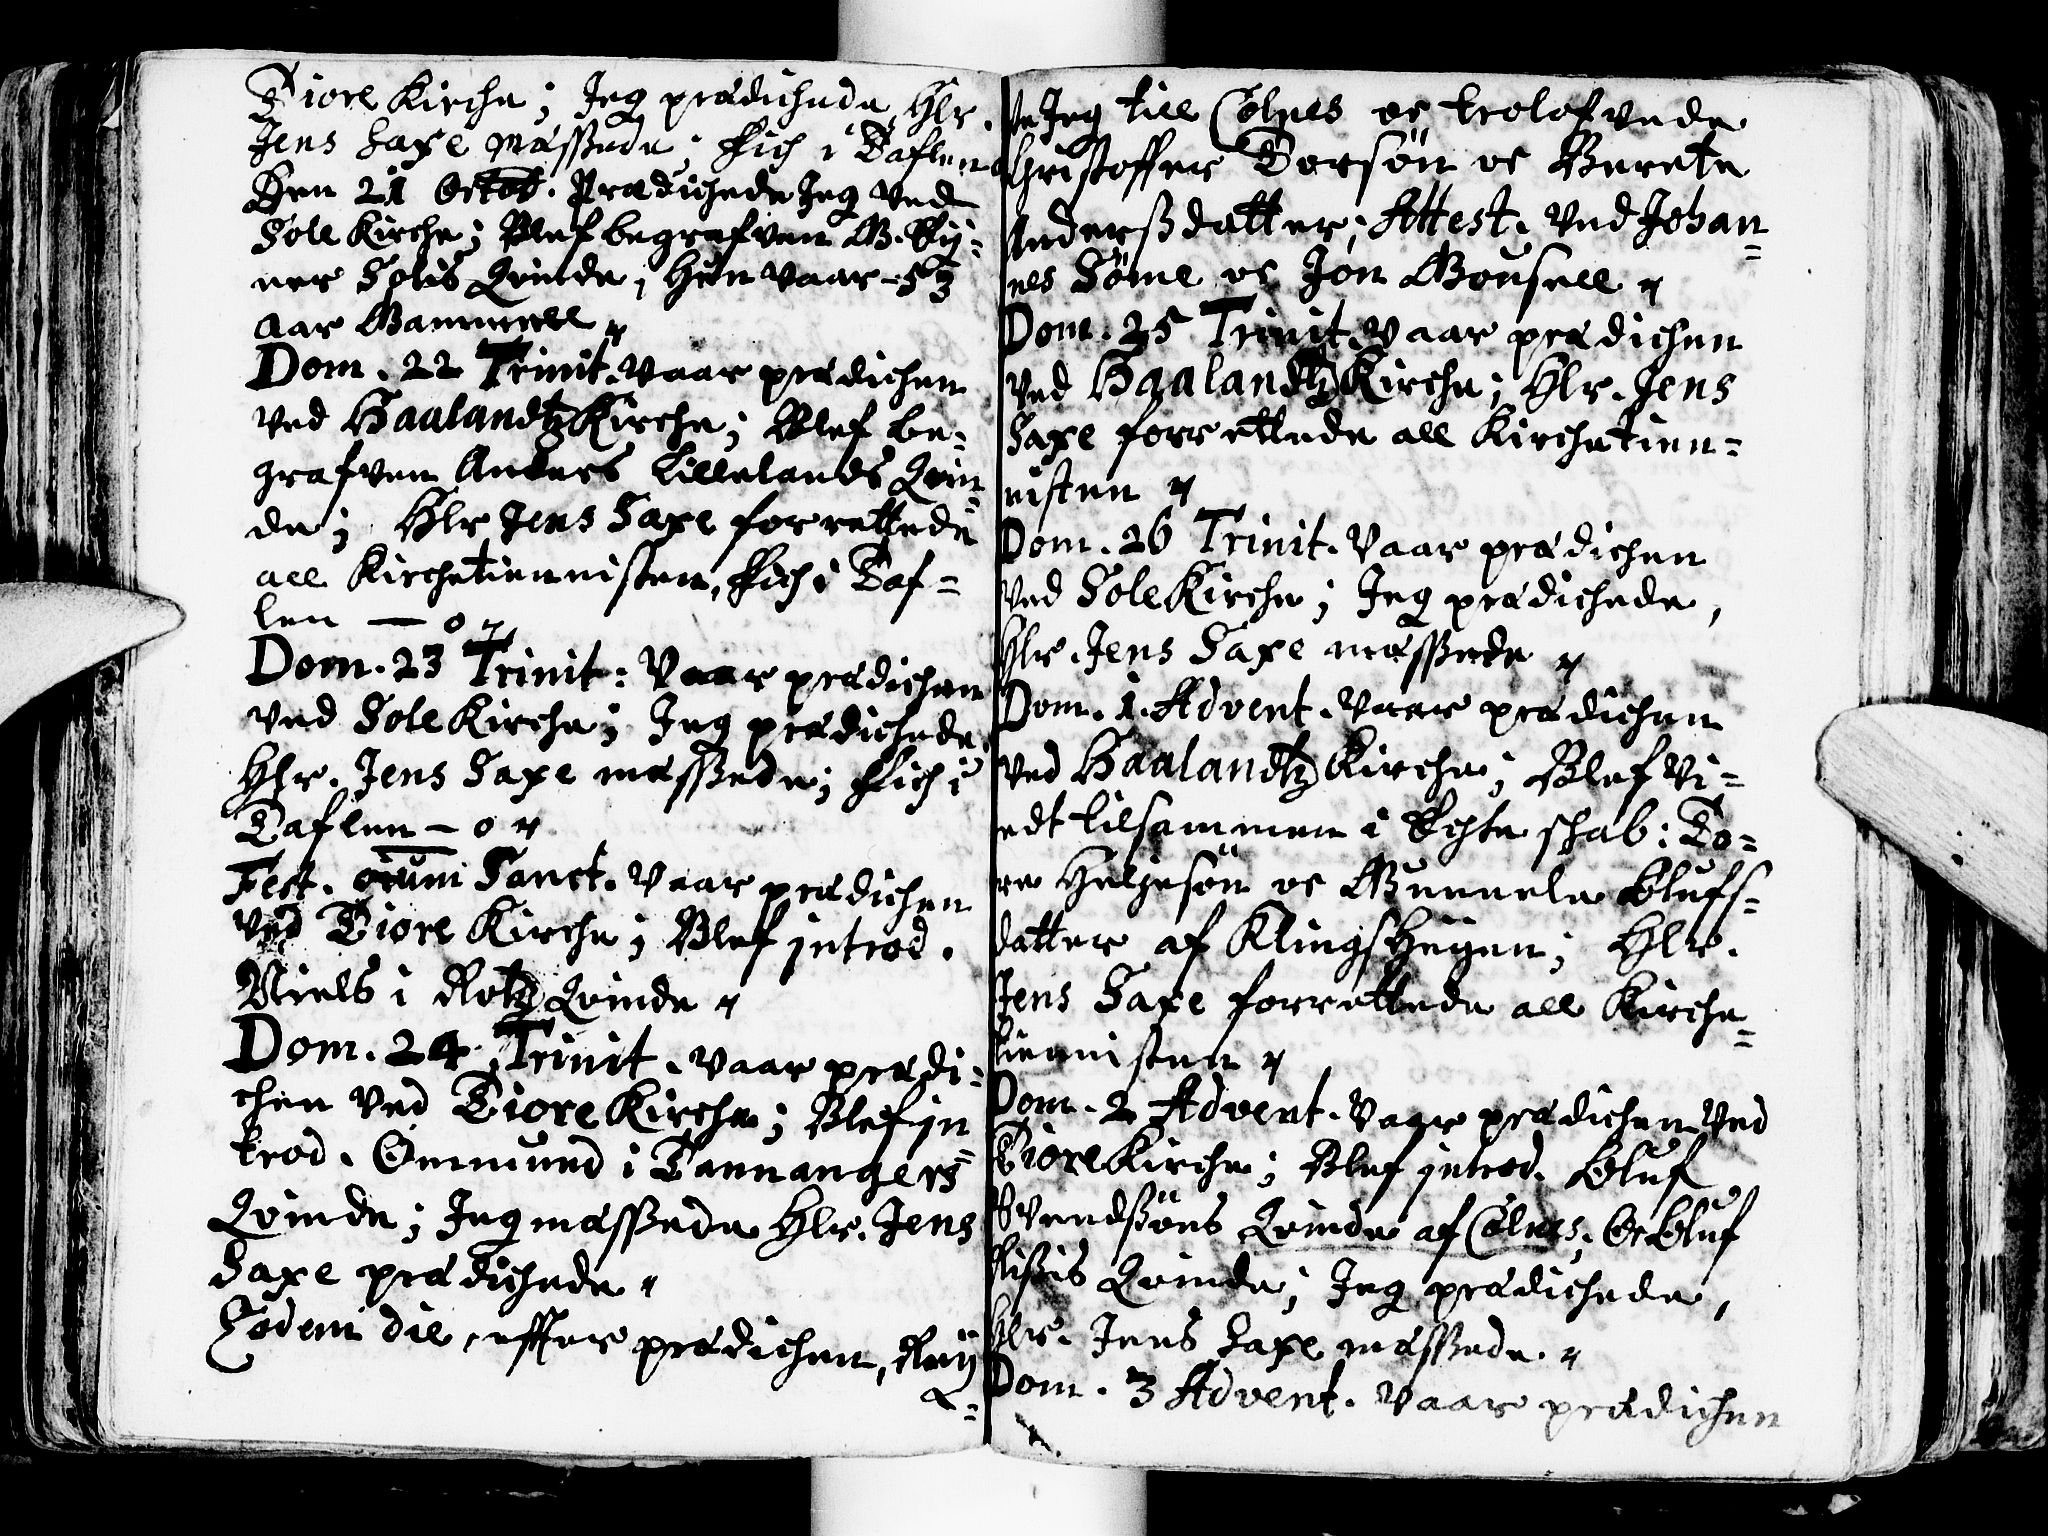 Tiore Kirche; Jeg prædichede, Hlr.
Jens Saxe mæssede; Fich i Taflen
Den 21 Octob. Prædichede Jeg ved
Sole Kirche; Blef begrafven G.
ner Solis Qvinde, hun vaar - 53
aar Gammell
Dom. 22 Trinit. Vaar prædichen
ved Haalandtz Kirche; Blef be-
grafven Anders Lillelands Qvin-
de; Hlr Jens Saxe forrettede
all Kirchetiennisten, Fich i Taf-
len — 0
Dom. 23 Trinit: Vaar prædichen
ved Sole Kirche; Jeg prædichede,
Hlr. Jens Saxe mæssede; Fich i
Taflen — 0
Fest. oium Sanct. Vaar prædichen
ved Tiore Kirche; Blef introd.
Niels i Rotz Qvinde
Dom. 24 Trinit. Vaar prædi-
chen ved Tiore Kirche; Blef in-
trod. Ommund i Tannangers
Qvinde; Jeg mæssede Hlr. Jens
Saxe prædichede
Eodem die, effter prædichen, Reij-
te Jeg till Colnes oc trolofvede
Christoffer Torsön oc Berete
Andersdatter; Attest. ved Johan-
nes Sömе oc Jon Gousell
Dom. 25 Trinit. Vaar prædichen
ved Haalandtz Kirche; Hlr. Jens
Saxe forrettede all Kirchetien-
nisten
Dom. 26 Trinit. Vaar prædichen
ved Sole Kirche; Jeg prædichede,
Hlr. Jens Saxe mæssede
Dom. 1. Advent. Vaar prædichen
ved Haalandtz Kirche; Blef vi-
edt tilsammen i Echte schab: To-
re Helgesön oc Gunnele Olufs-
datter af Klingsheyen; Hlr.
Jens Saxe forrettede all Kirche-
tiennisten
Dom. 2 Advent. Vaar prædichen ved
Tiore Kirche; Blef introd. Oluf
Svendsöns Qvinde af Colnes, Oc Oluf
Qvinde; Jeg prædichede,
Hlr. Jens Saxe mæssede.
Dom. 3 Advent. Vaar prædichen